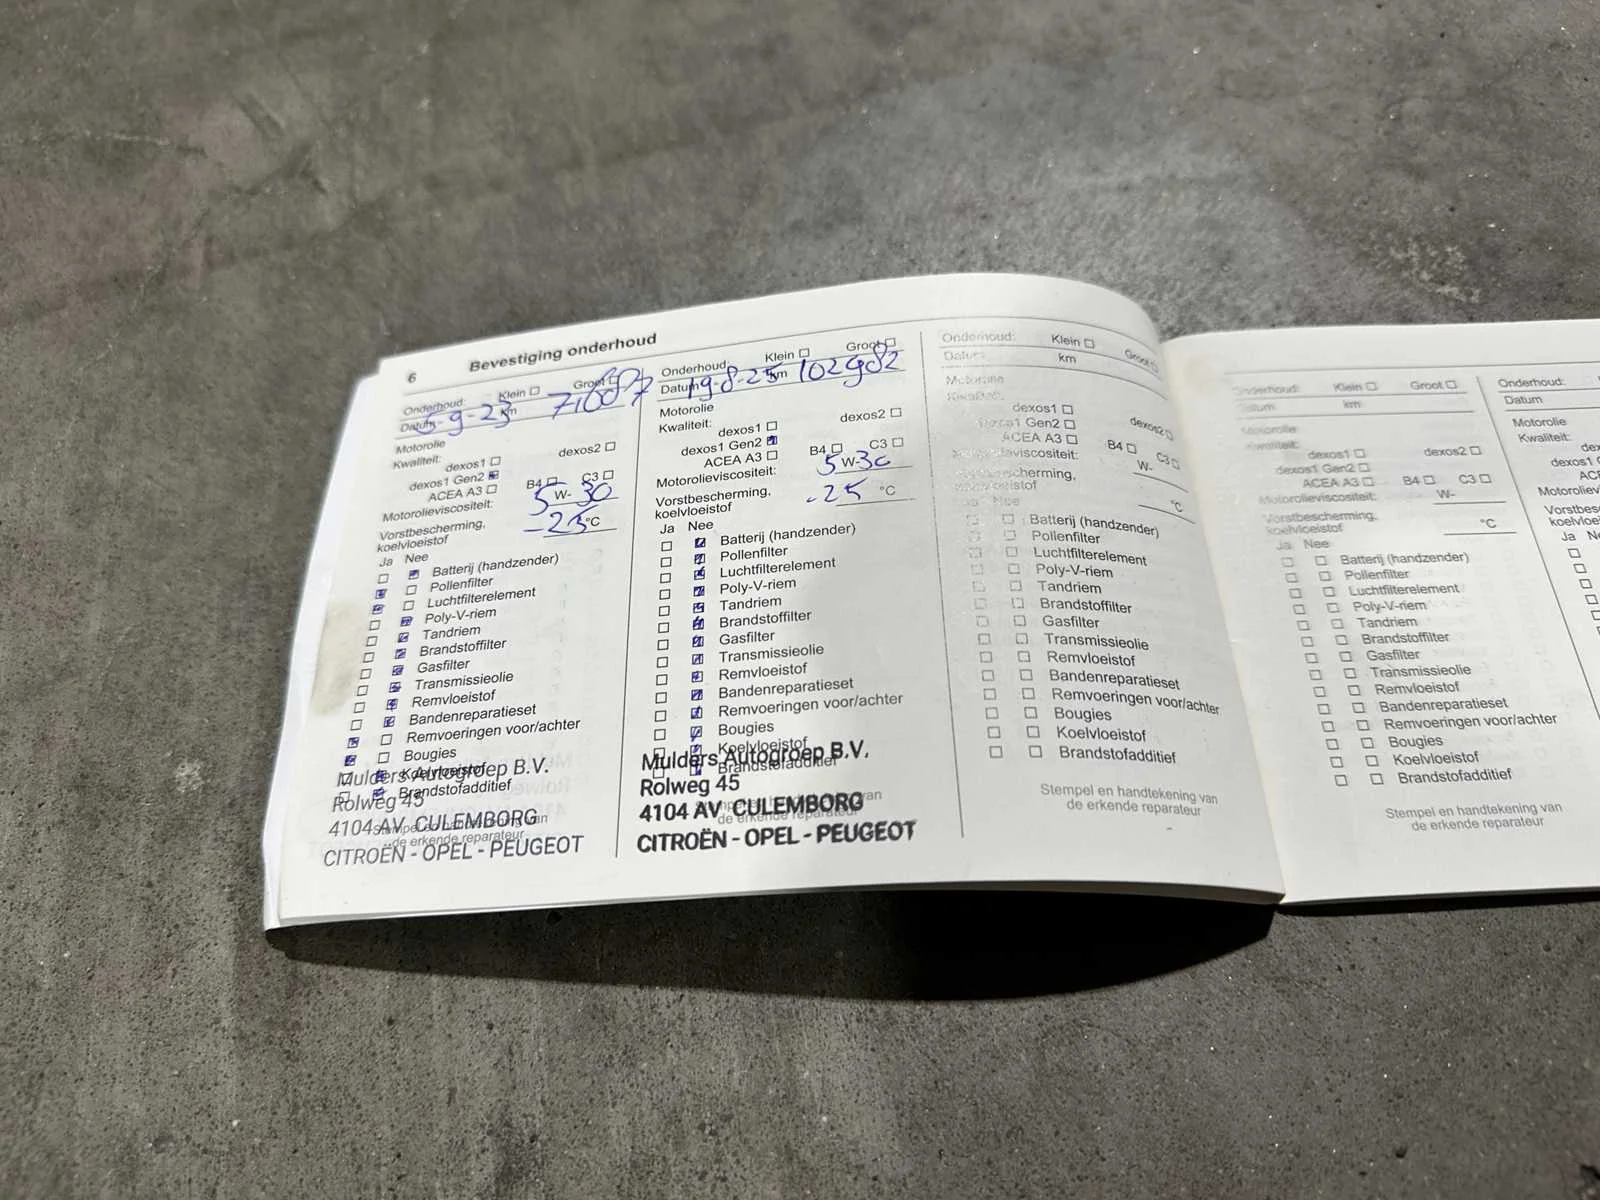 6 Bevestiging onderhoud
Onderhoud: Klein Groot
Datum 5-9-23 km
Motorolie
Kwaliteit: dexos1 dexos2
dexos1 Gen2
ACEA A3 B4 C3
Motorolieviscositeit: 5 W- 30
Vorstbescherming,
koelvloeistof -25 °C
Ja Nee
Batterij (handzender)
Pollenfilter
Luchtfilterelement
Poly-V-riem
Tandriem
Brandstoffilter
Gasfilter
Transmissieolie
Remvloeistof
Bandenreparatieset
Remvoeringen voor/achter
Bougies
Koelvloeistof
Brandstofadditief
Stempel en handtekening van
de erkende reparateur
Mulders Autogroep B.V.
Rolweg 45
4104 AV CULEMBORG
CITROËN - OPEL - PEUGEOT
Onderhoud: Klein Groot
Datum 19-8-25 km 102982
Motorolie
Kwaliteit: dexos1 dexos2
dexos1 Gen2
ACEA A3 B4 C3
Motorolieviscositeit: 5 W-30
Vorstbescherming,
koelvloeistof -25 °C
Ja Nee
Batterij (handzender)
Pollenfilter
Luchtfilterelement
Poly-V-riem
Tandriem
Brandstoffilter
Gasfilter
Transmissieolie
Remvloeistof
Bandenreparatieset
Remvoeringen voor/achter
Bougies
Koelvloeistof
Brandstofadditief
Stempel en handtekening van
de erkende reparateur
Mulders Autogroep B.V.
Rolweg 45
4104 AV CULEMBORG
CITROËN - OPEL - PEUGEOT
Onderhoud: Klein Groot
Datum km
Motorolie
Kwaliteit:
dexos1 dexos2
dexos1 Gen2
ACEA A3 B4 C3
Motorolieviscositeit: W-
Vorstbescherming,
koelvloeistof °C
Ja Nee
Batterij (handzender)
Pollenfilter
Luchtfilterelement
Poly-V-riem
Tandriem
Brandstoffilter
Gasfilter
Transmissieolie
Remvloeistof
Bandenreparatieset
Remvoeringen voor/achter
Bougies
Koelvloeistof
Brandstofadditief
Stempel en handtekening van
de erkende reparateur
Onderhoud: Klein Groot
Datum km
Motorolie
Kwaliteit:
dexos1 dexos2
dexos1 Gen2
ACEA A3 B4 C3
Motorolieviscositeit: W-
Vorstbescherming,
koelvloeistof °C
Ja Nee
Batterij (handzender)
Pollenfilter
Luchtfilterelement
Poly-V-riem
Tandriem
Brandstoffilter
Gasfilter
Transmissieolie
Remvloeistof
Bandenreparatieset
Remvoeringen voor/achter
Bougies
Koelvloeistof
Brandstofadditief
Stempel en handtekening van
de erkende reparateur
Onderhoud:
Datum
Motorolie
Kwaliteit: